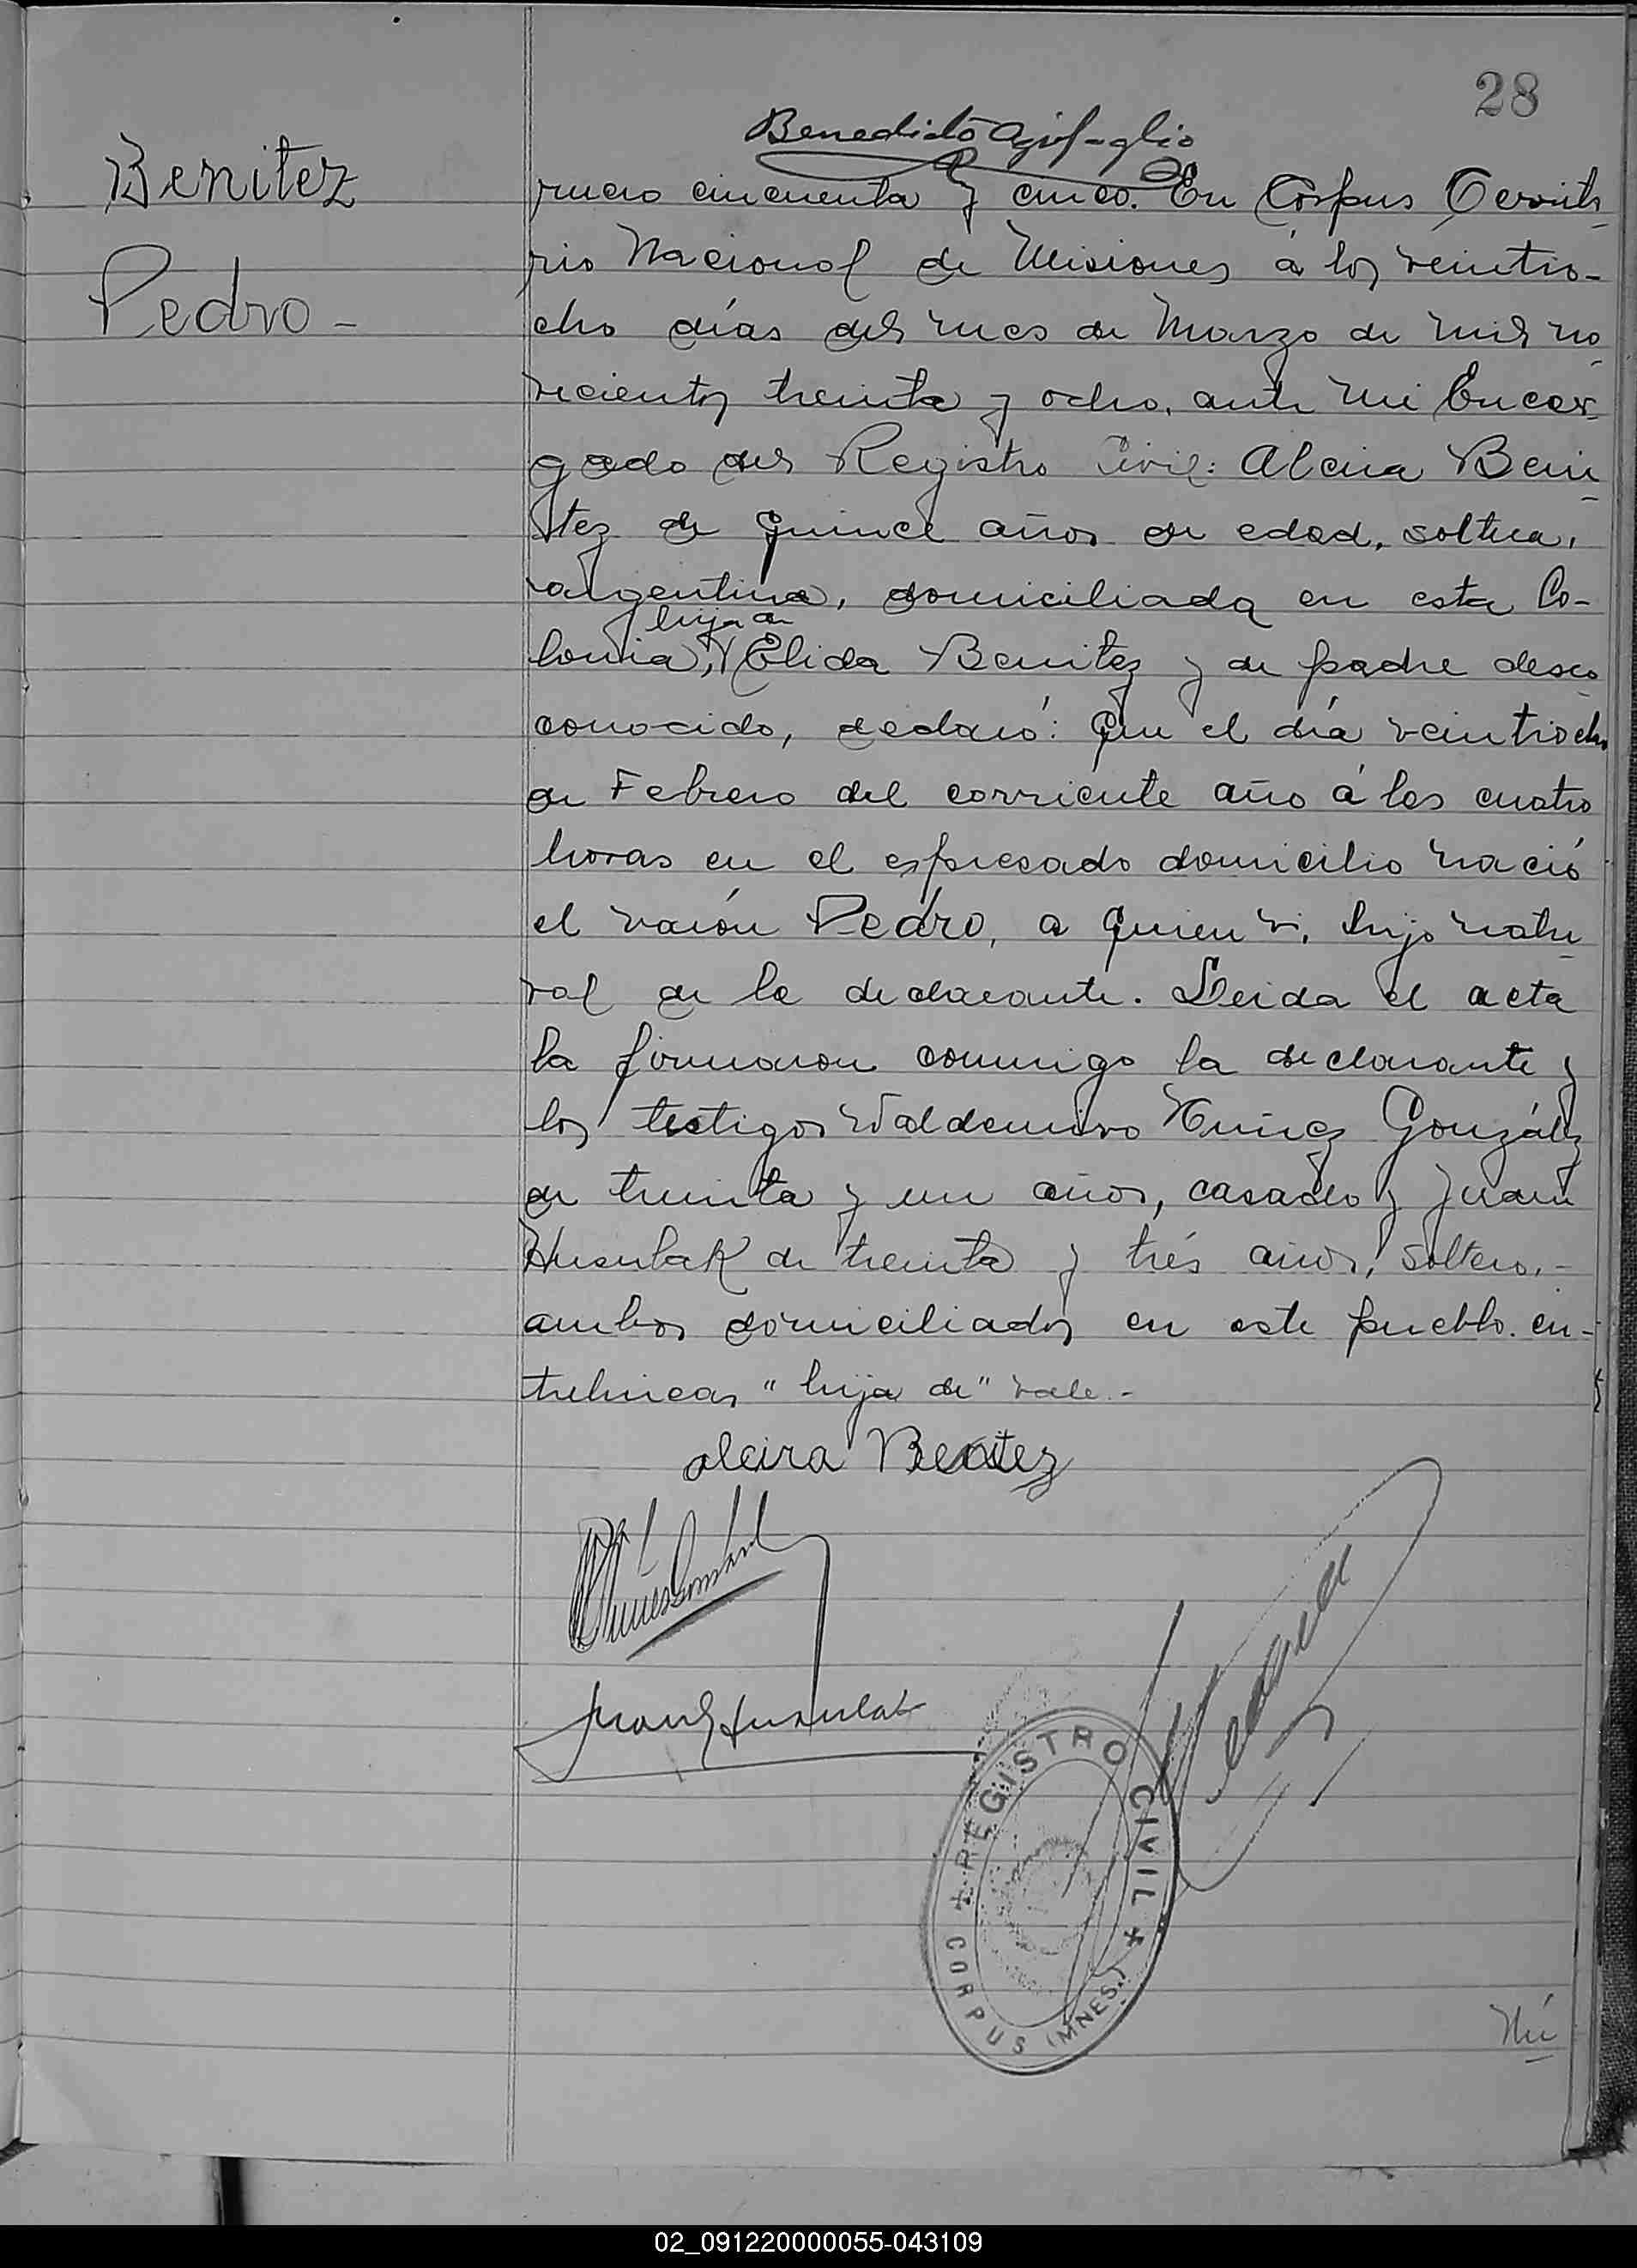 28
Benitez
Pedro -
Benedicto
mero cincuenta y cinco. En Corpus Territo
rio Nacional de Misiones á los veintio-
cho días del mes de Marzo de mil no
vecientos treinta y ocho, ante mi Encar
gado del Registro Civil: Alcira Beni
tez de quince años de edad, soltera,
argentina, domiciliada en esta Co-
hija de
lonia, Elida Benitez y de padre des
conocido, declaró: Que el día veintiocho
de Febrero del corriente año á las cuatro
horas en el espresado domicilio nació
el varón Pedro, a quien vi, hijo natu
ral de la declarante. Leida el acta
la firmaron conmigo la declarante y
los testigos Valdemiro Nuñez González
de treinta y un años, casado y Juan
Husulak de treinta y trés años, soltero,-
ambos domiciliados en este pueblo. en-
trelineas "hija de" vale.-
alcira Benitez
Juan Husulak
REGISTRO CIVIL
CORPUS (MNES.)
Nú
02_091220000055-043109